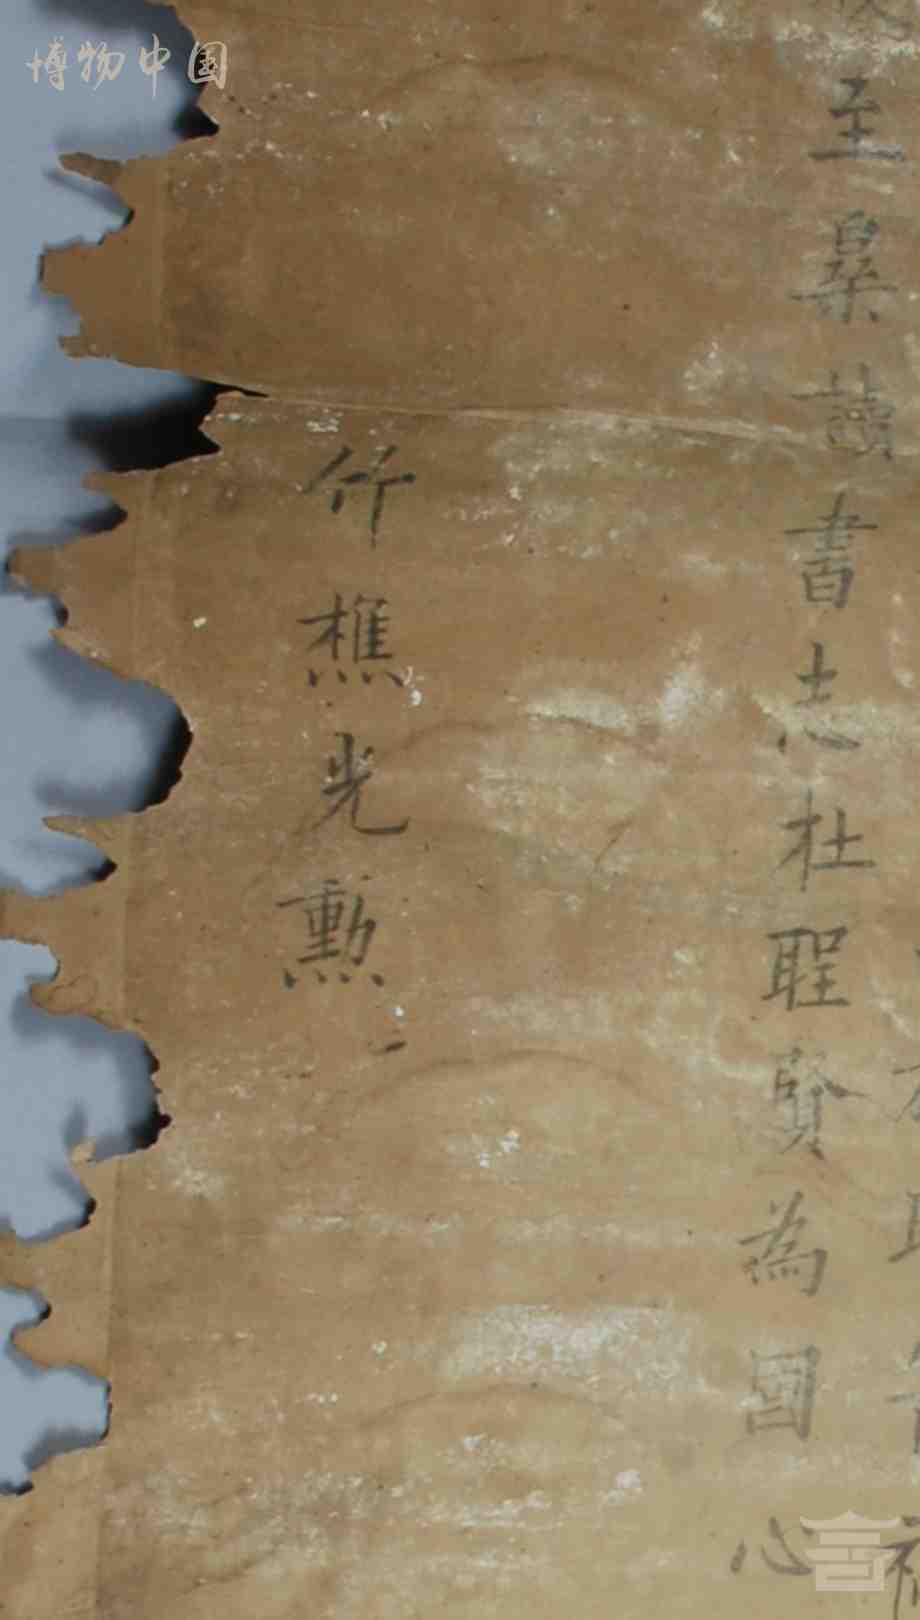 至㬥讀書志杜聖賢為國心
竹樵光勳
博物中国